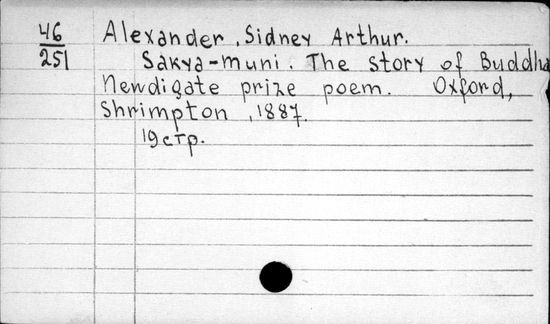 46
251
Alexander, Sidney Arthur.
Sakya-muni. The story of Buddha
Newdigate prize poem. Oxford,
Shrimpton, 1887.
19 стр.